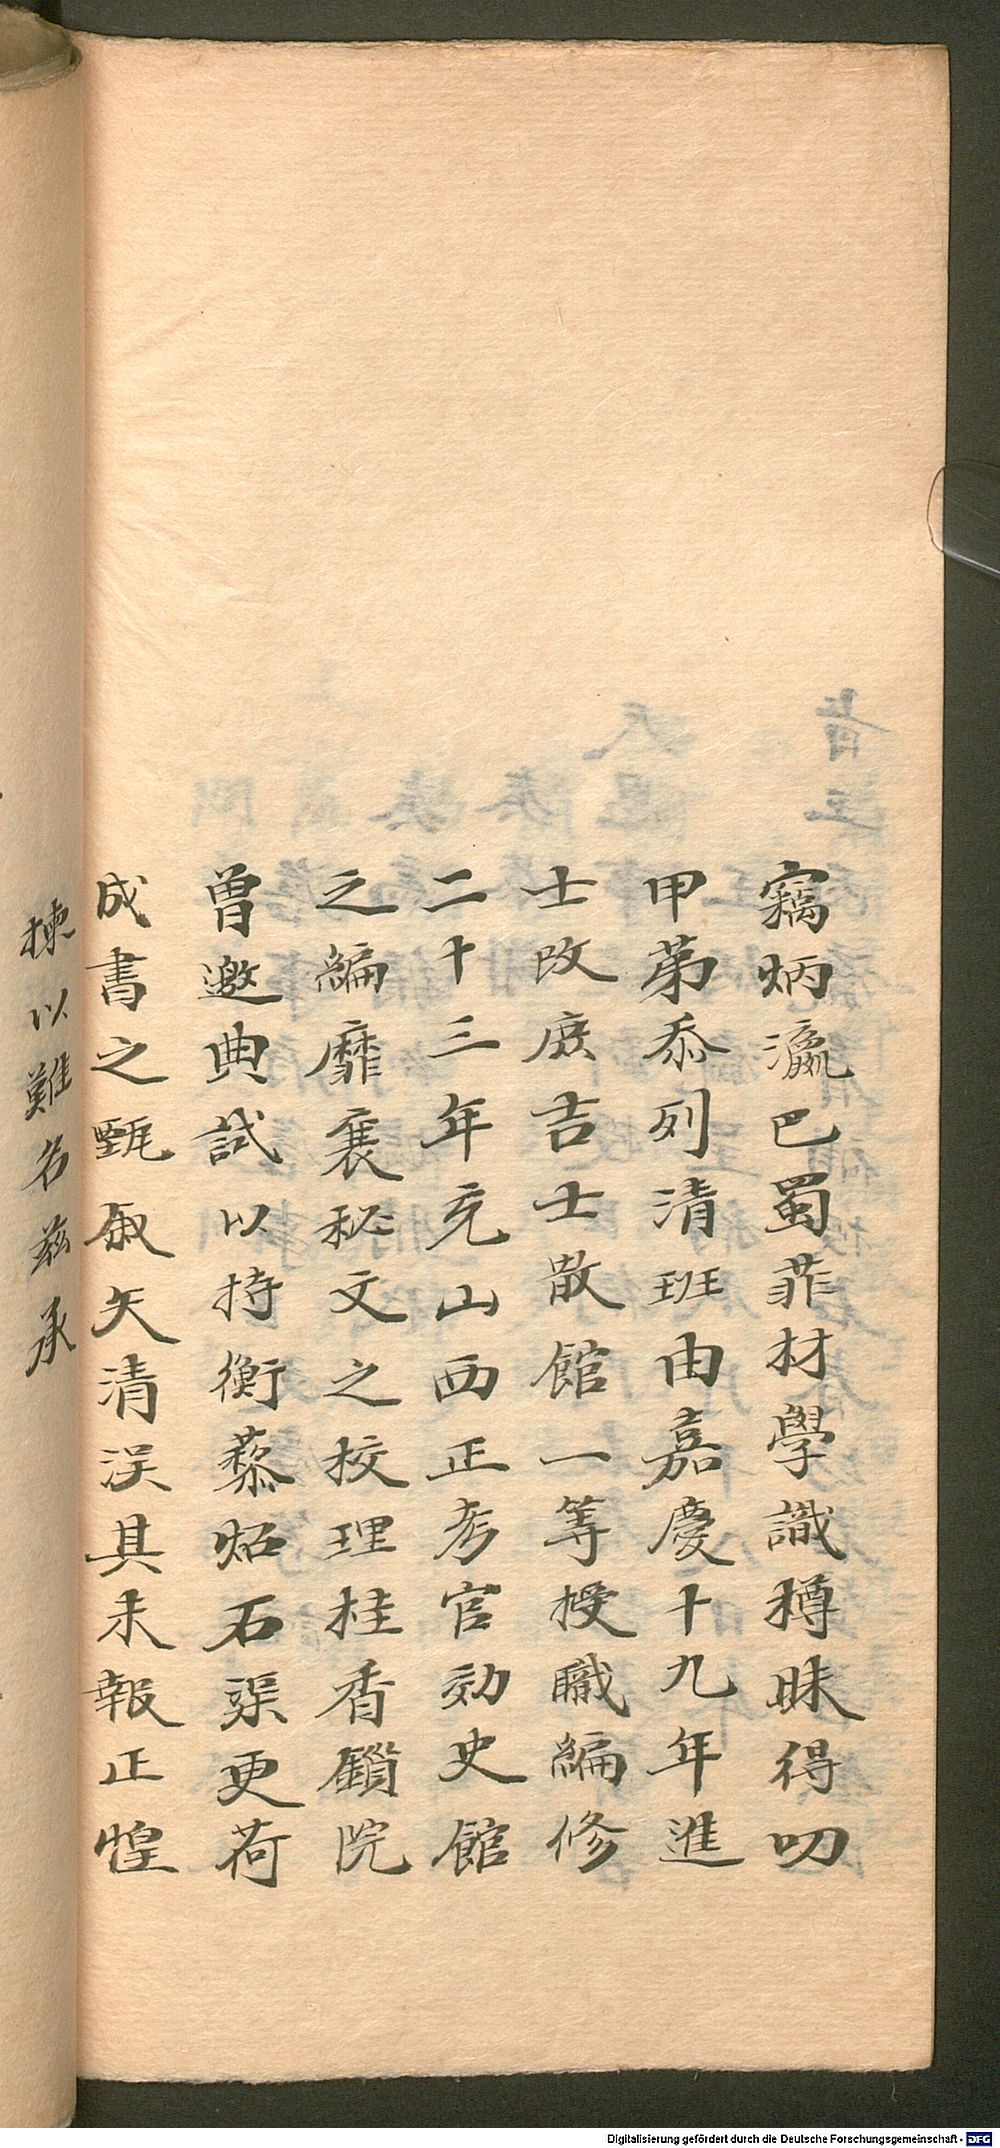 竊炳瀛巴蜀菲材學識樗昧得叨
甲第忝列清班由嘉慶十九年進
士改庶吉士散館一等授職編修
二十三年充山西正考官効史館
之編靡襄秘文之校理桂香鎖院
曾邀典試以持衡藜炤石渠更荷
成書之甄敘矢清浽其未報正惶
揀以難名茲承
Digitalisierung gefördert durch die Deutsche Forschungsgemeinschaft - DFG